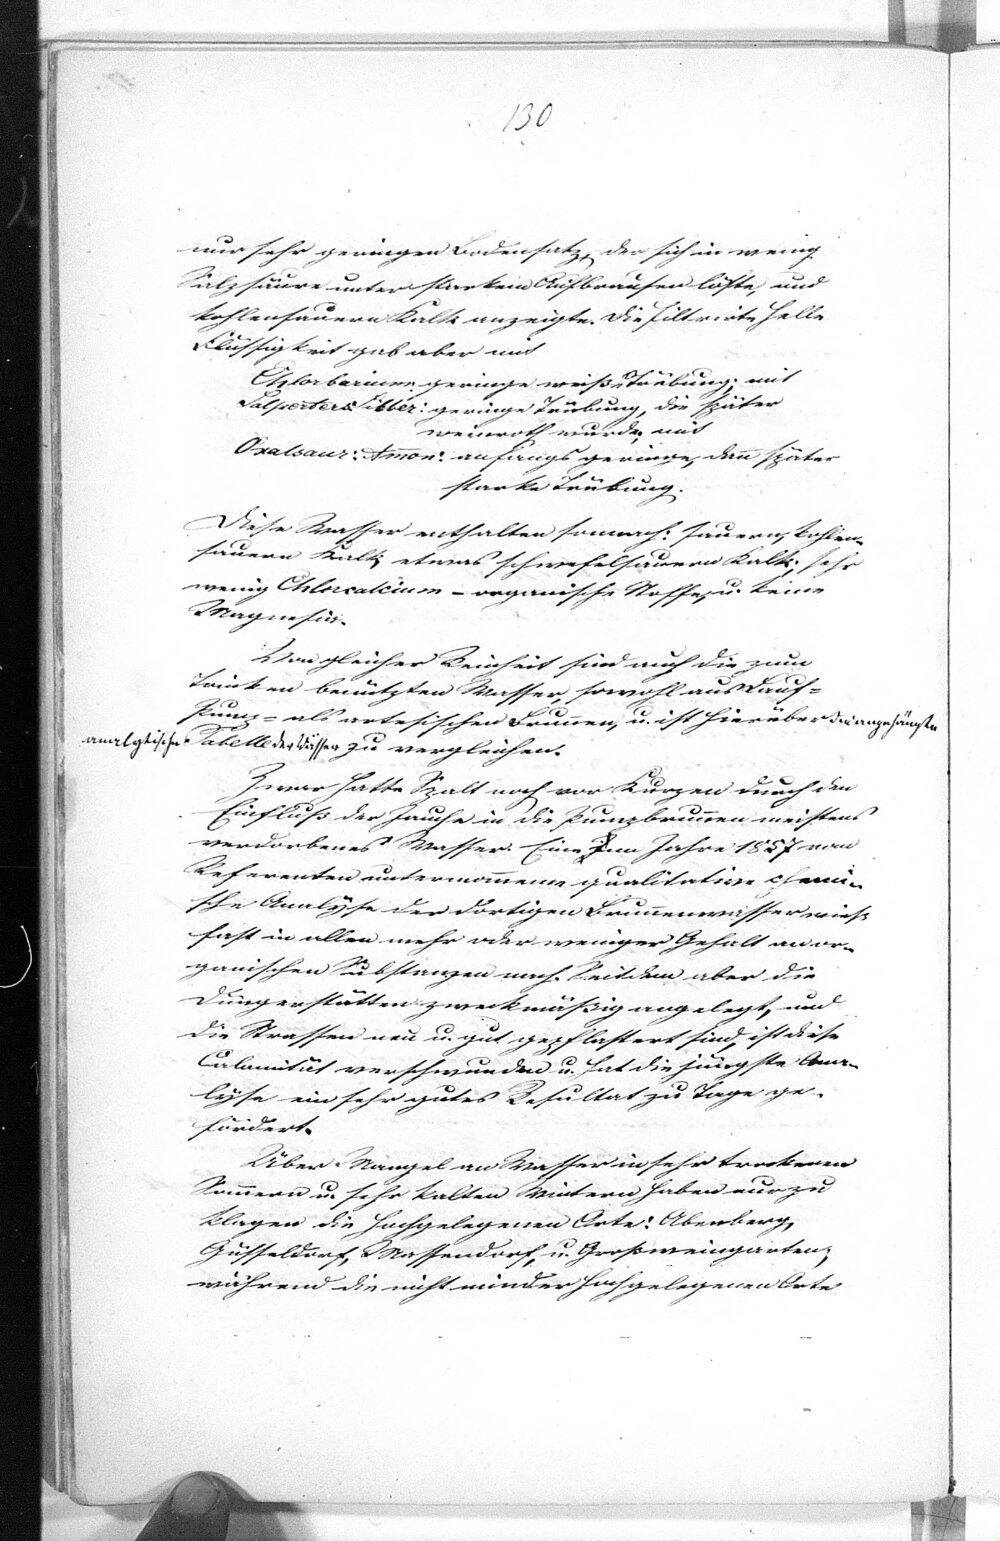 130
nur sehr geringen Bodensatz, der sich in wenig
Salzsäure unter starkem Aufbrausen löste, und
kohlensauern Kalk anzeigte. Die filtrirte helle
Flüssigkeit gab aber mit
Chlorbarium: geringe weiße Trübung; mit
Salpeters: Silber: geringe Trübung, die später
weinroth wurde, mit
Oxalsaur: Amon: anfangs geringe, dan später
starke Trübung.
Diese Wasser enthalten somach: sauern, kohlen-
sauern Kalk, etwas schwefelsauern Kalk; sehr
wenig Chlorcalcium – organische Stoffe, u. keine
Magnesia.
Von gleicher Reinheit sind auch die zum
Trinken benützten Wasser, sowohl aus Lauf=
Pump= als artesischen Brunnen, u. ist hierüber die angehängte
analytische Tabelle der Wässer zu vergleichen.
Zwar hatte Spalt noch vor Kurzen durch den
Einfluß der Jauche in die Pumpbrunnen meistens
verdorbenes Wasser. Eine im Jahre 1857 vom
Referenten unternomene qualitative chemi-
sche Analyse der dortigen Brunnenwasser wies
fast in allen mehr oder weniger Gehalt an or-
ganischen Substanzen nach. Seitdem aber die
Düngerstätten zweckmäßig angelegt, und
die Strassen neu u. gut gepflastert sind, ist diese
Calamität verschwunden u. hat die jüngste Ana-
lyse ein sehr gutes Resultat zu Tage ge-
fördert.
Über Mangel an Wasser in sehr trockenen
Sommern u. sehr kalten Wintern haben nur zu
klagen die hochgelegenen Orte: Abenberg,
Güsseldorf, Massendorf, u. Großweingarten,
während die nicht minder hochgelegenen Orte